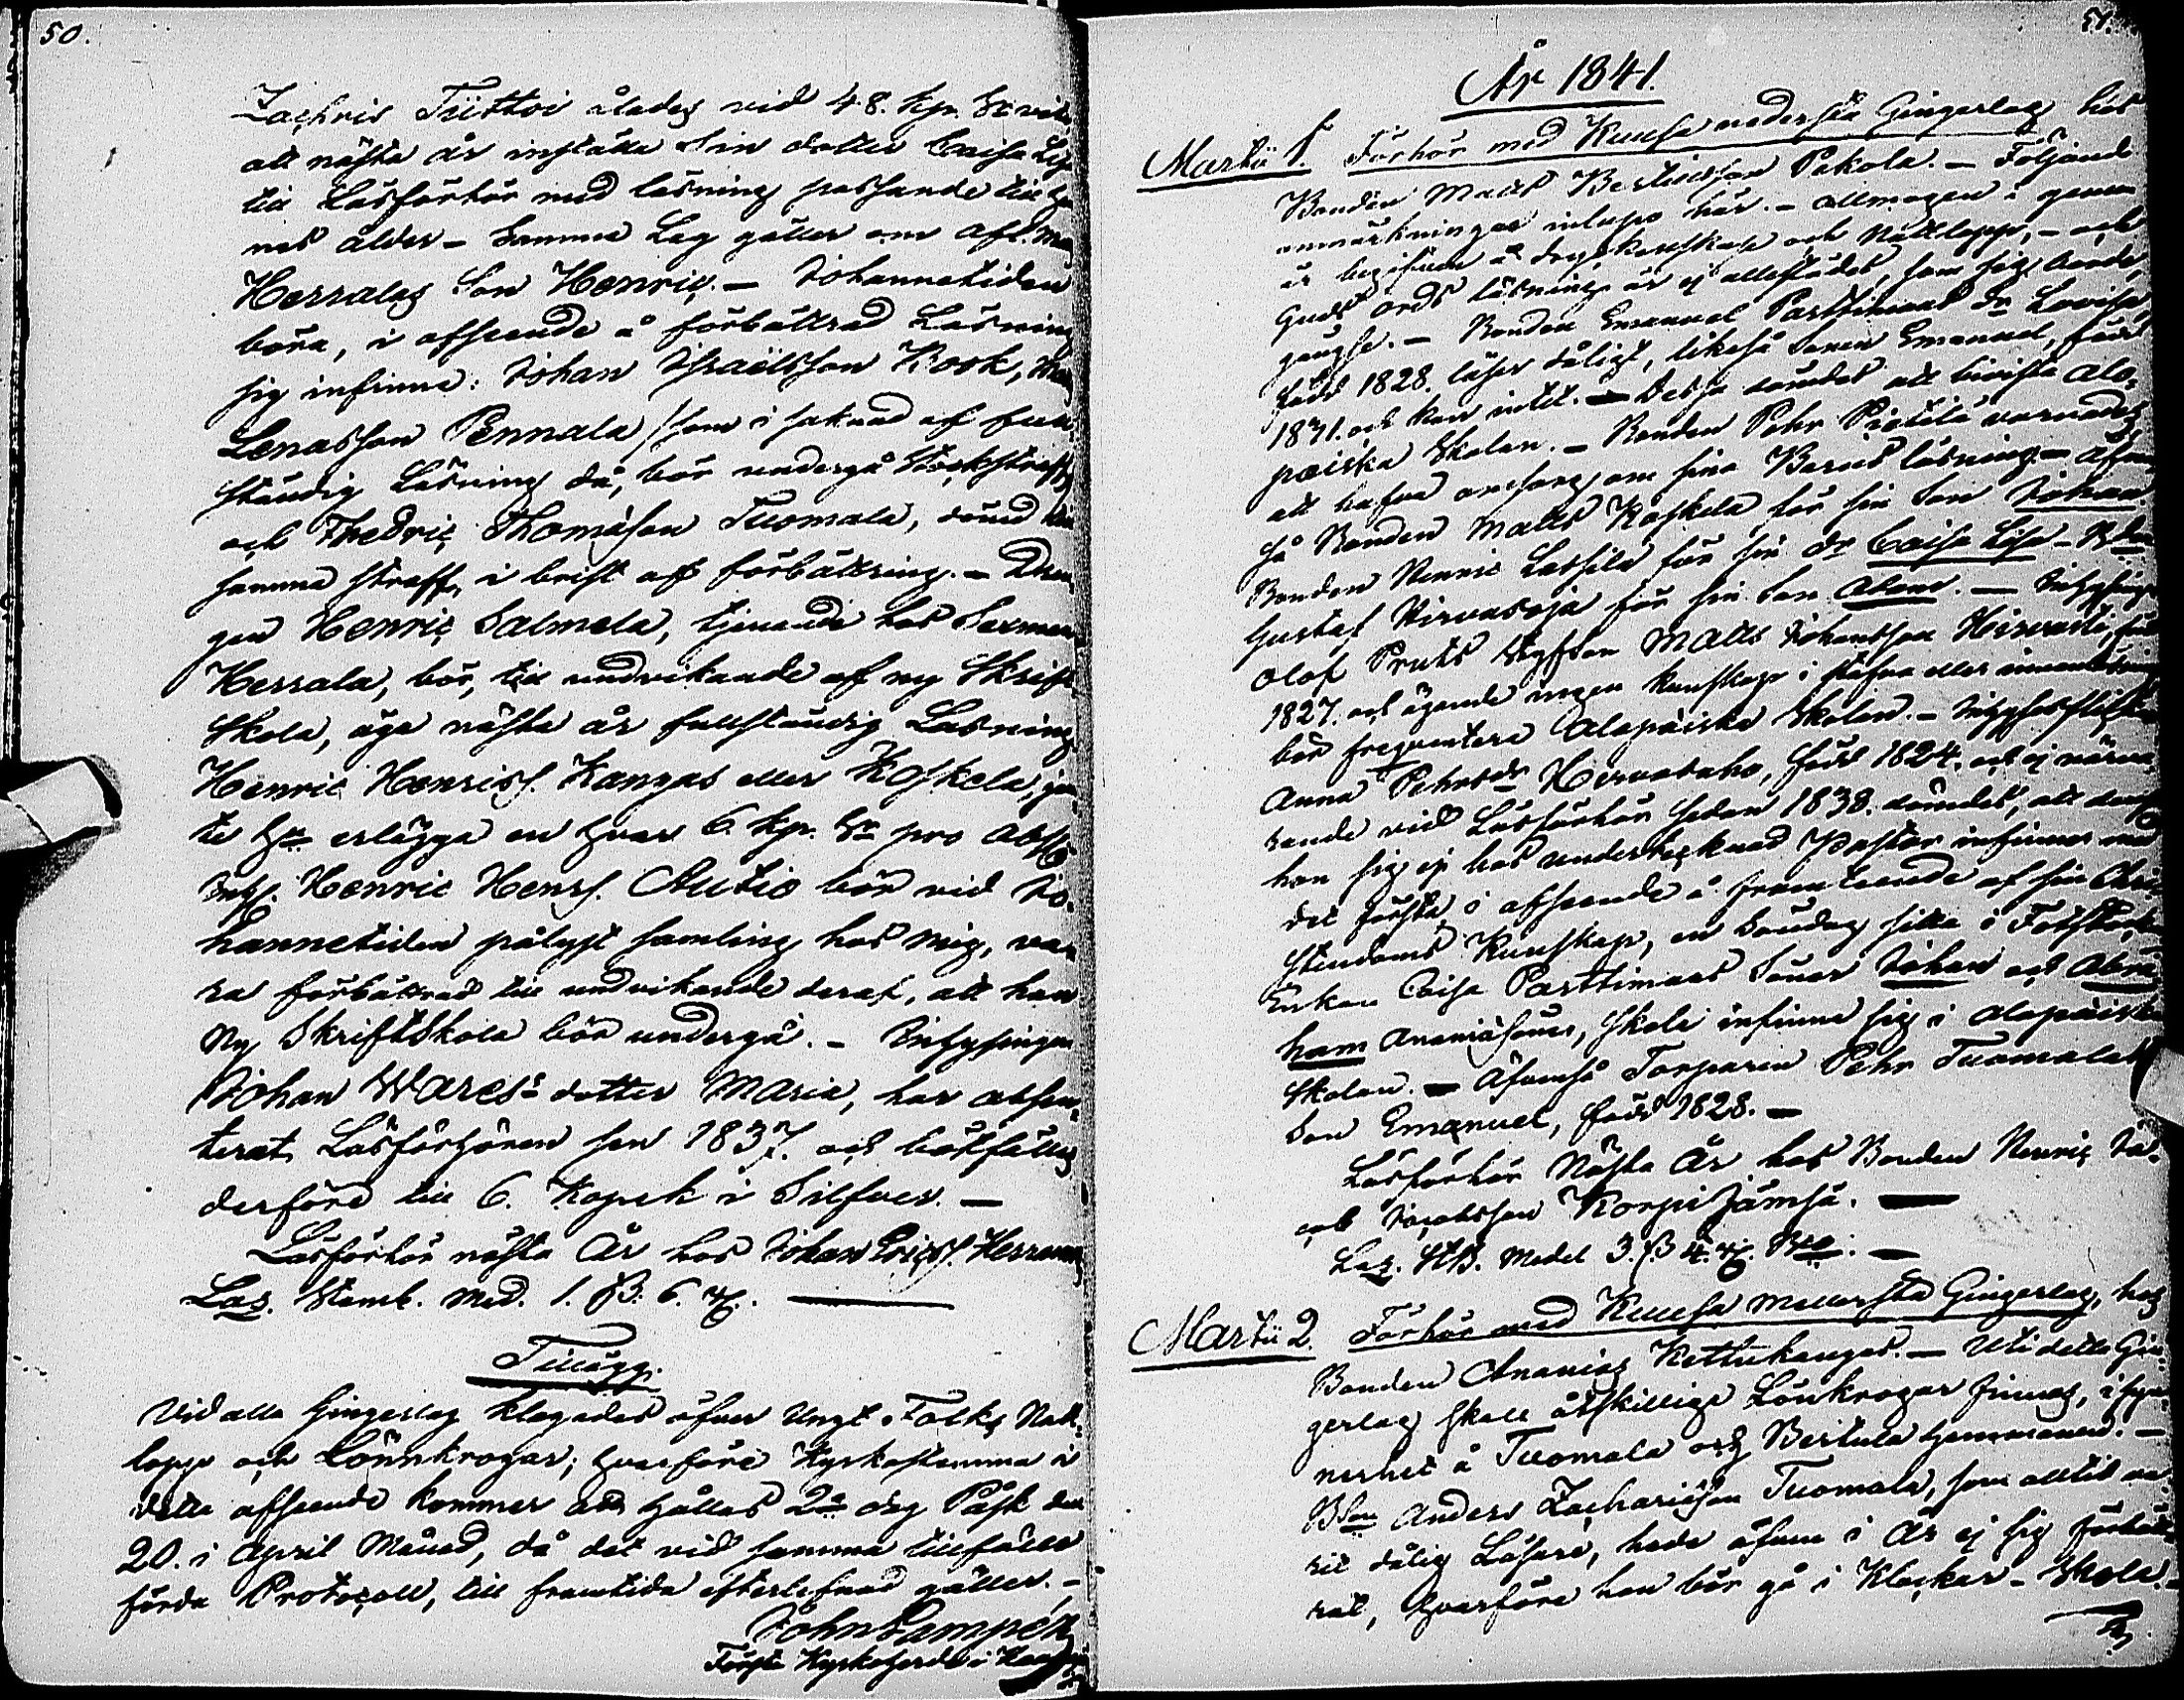 50.
Zachris Tüttoi ålades vid 48. kp. Sr vite
att nästa år inställa Sin dotter Caisa Lisa
till Läsförhör med läsning passande till hen
nes ålder - Samma Lag gäller om afl. Matts
Herralas Son Henric. - Johannetiden
böra, i afseende å förbättrad Läsning
sig infinna: Johan Israëlsson Kook,
Lenasson Pennala / som i saknad af full
ständig Läsning då, bör undergå Stockstraff,
och Fredric Thomasson Tuomala, dömd till
samma straff, i brist af förbättring. - Drän
gen Henric Salmela, tjenande hos Sexman
Herrala, bör, till undvikande af ny Skrift
Skola, äga nästa år fullständig Läsning.
Henric Henriss. Kangas eller Koskela,
te Hr erlägga en hvar 6. kp. Sr pro abs.
Inhs. Henric Henrs. Autio bör vid Jo-
hannetiden pålyst samling hos mig, va-
ra förbättrad till undvikande deraf, att han
Ny Skriftskola bör undergå. - Inhysingen
Johan Wares dotter Maria, har absen-
terat Läsförhören sen 1837. och bötfälles
derföre till 6. Kopek i Silfver. -
Läsförhör nästa År hos Johan Ericss. Herranen
Laz. Stamb. Med. 1. ß. 6. rf.
Tillägg.
Vid alla Gingerlag klagades öfver Ungt Folks Natt-
lopp och Lönnkrogar; hvarföre Kyrkostämma i
detta afseende kommer att hållas 2dra dag Påsk den
20. i April Månad, då det vid samma tillfälle
förda Protocoll, till framtida efterlefnad gäller. -
John Lampén
Förste Kyrkoherde i
51.
År 1841.
Martii 1. Förhör med Kuusa nedersta Gingerlag hos
Bonden Matts Bertilsson Pakola. - Följande
anmärkningar inlupo här. - allmogen i gemen
är begifven å dryckenskap och Nattlopp, - och
Guds ords läsning är ej allestädes, som sig borde,
gängse. - Bonden Emanuel Parttimaas dr Lovisa,
född 1828. läser dåligt, likaså Sonen Emanuel, född
1831. och kan intet. - Dessa dömdes att bivista Ala-
päiskä Skolan. - Bonden Pehr Pietilä varnades
att hafva omsorg om sina Barns läsning - Äfven
så Bonden Matts Koskela för sin Son Johan
Bonden Henric Lassila för sin dr Caisa Lisa - Bden
Gustaf Hirvasoja för sin Son Adam. - Inhysing
Olof Pruts Styfson Matts Johansson Hirvaste, född
1827. och ägande ingen kunskap i stafva eller innanläsning
bör frequentera Alapäiskä Skolan. - Inhyseflickan
Anna Pehrsdr Hirvasaho, född 1824. och ej närva-
rande vid Läsförhör sedan 1838. dömdes, att derest
hon sig ej hos undertecknad Pastor infinner med
det första, i afseende å framteende af sin Chri-
stendoms Kunskap, en Söndag sitta i Fotstock.
Enkan Caisa Parttimaas Söner Johan och Abra-
ham Ananiäsöner, skola infinna sig i Alapäiskä
Skolan. - Äfvenså Torparen Pehr Tuomalas
Son Emanuel, född 1828. -
Läsförhör Nästa År hos Bonden Henric Ja-
cob Jacobsson Korpijämsä. -
Laz. StB. Medel 3. ß 4. rf. Bco. -
Martii 2. Förhör med Kuusa Mellersta Gingerlag, hos
Bonden Ananias Kettukangas. - Uti detta Gin-
gerlag skall åtskillige Lönkrogar finnas, i syn-
nerhet å Tuomala och Bertula hemmanen. -
Bson Anders Zachariäson Tuomala, som alltid va-
rit dålig Läsare, hade äfven i År ej sig förbätt-
rat, hvarföre han bör gå i Klockar-Skola. -